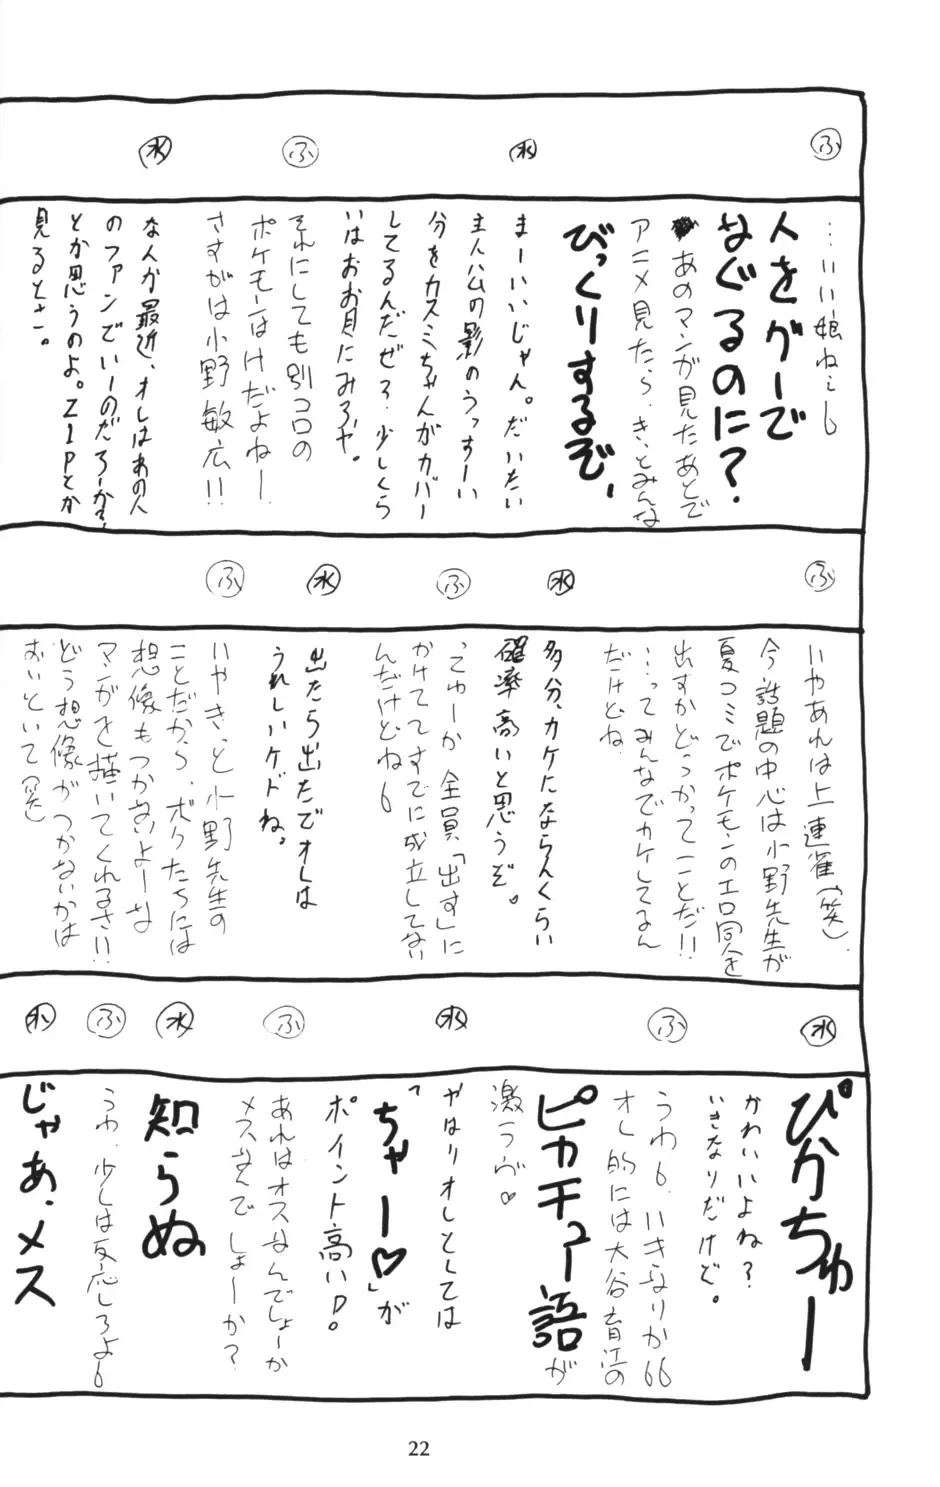 ふ
…いい娘ねぇ6
人をグーで
なぐるのに？
あのマンガ見たあとで
アニメ見たら、きっとみんな
びっくりするぞ、
水
まーいいじゃん。だいたい
主人公の影のうっすーい
分をカスミちゃんがカバー
してるんだぜろ、少しくら
いはお目にみろや。
ふ
それにしても別コロの
ポケモンはけだよねー、
さすがは小野敏広!!
水
な人が最近、オレはあの人
のファンでいーのだろーか？
とか思うのよ。ZIPとか
見るとさー。
ふ
いやあれは上連雀（笑）。
今話題の中心は小野先生が
夏コミでポケモンのエロ同人を
出すかどうかってことだ!!
…ってみんなでカケしてるん
だけどね
水
多分、カケにならんくらい
確率高いと思うぞ。
ふ
ってゆーか全員「出す」に
かけててすでに成立してない
んだけどね6
水
出たら出たでオレは
うれしいケドね。
ふ
いやきっと小野先生の
ことだから、ボクたちには
想像もつかないよーな
マンガを描いてくれるさ!!
どう想像がつかないかは
おいといて（笑）
水
ぴかちゅー
かわいいよね？
いきなりだけど。
ふ
うわ6、いきなりか66
オレ的には大谷育江の
ピカチュー語が
激ラヴ♡
水
やはりオレとしては
「ちゃー♡」が
ポイント高いD。
ふ
あれはオスなんでしょーか
メスなんでしょーか？
水
知らぬ
ふ
うわ、少しは反応しろよ6
水
じゃあ、メス
22